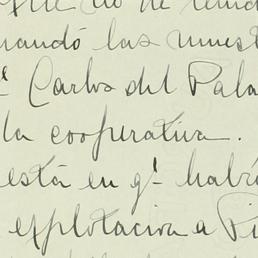 que no de
mandó las muest
Carlos del Pala
la cooperativa.
está en gl habrí
explotacion a Pi